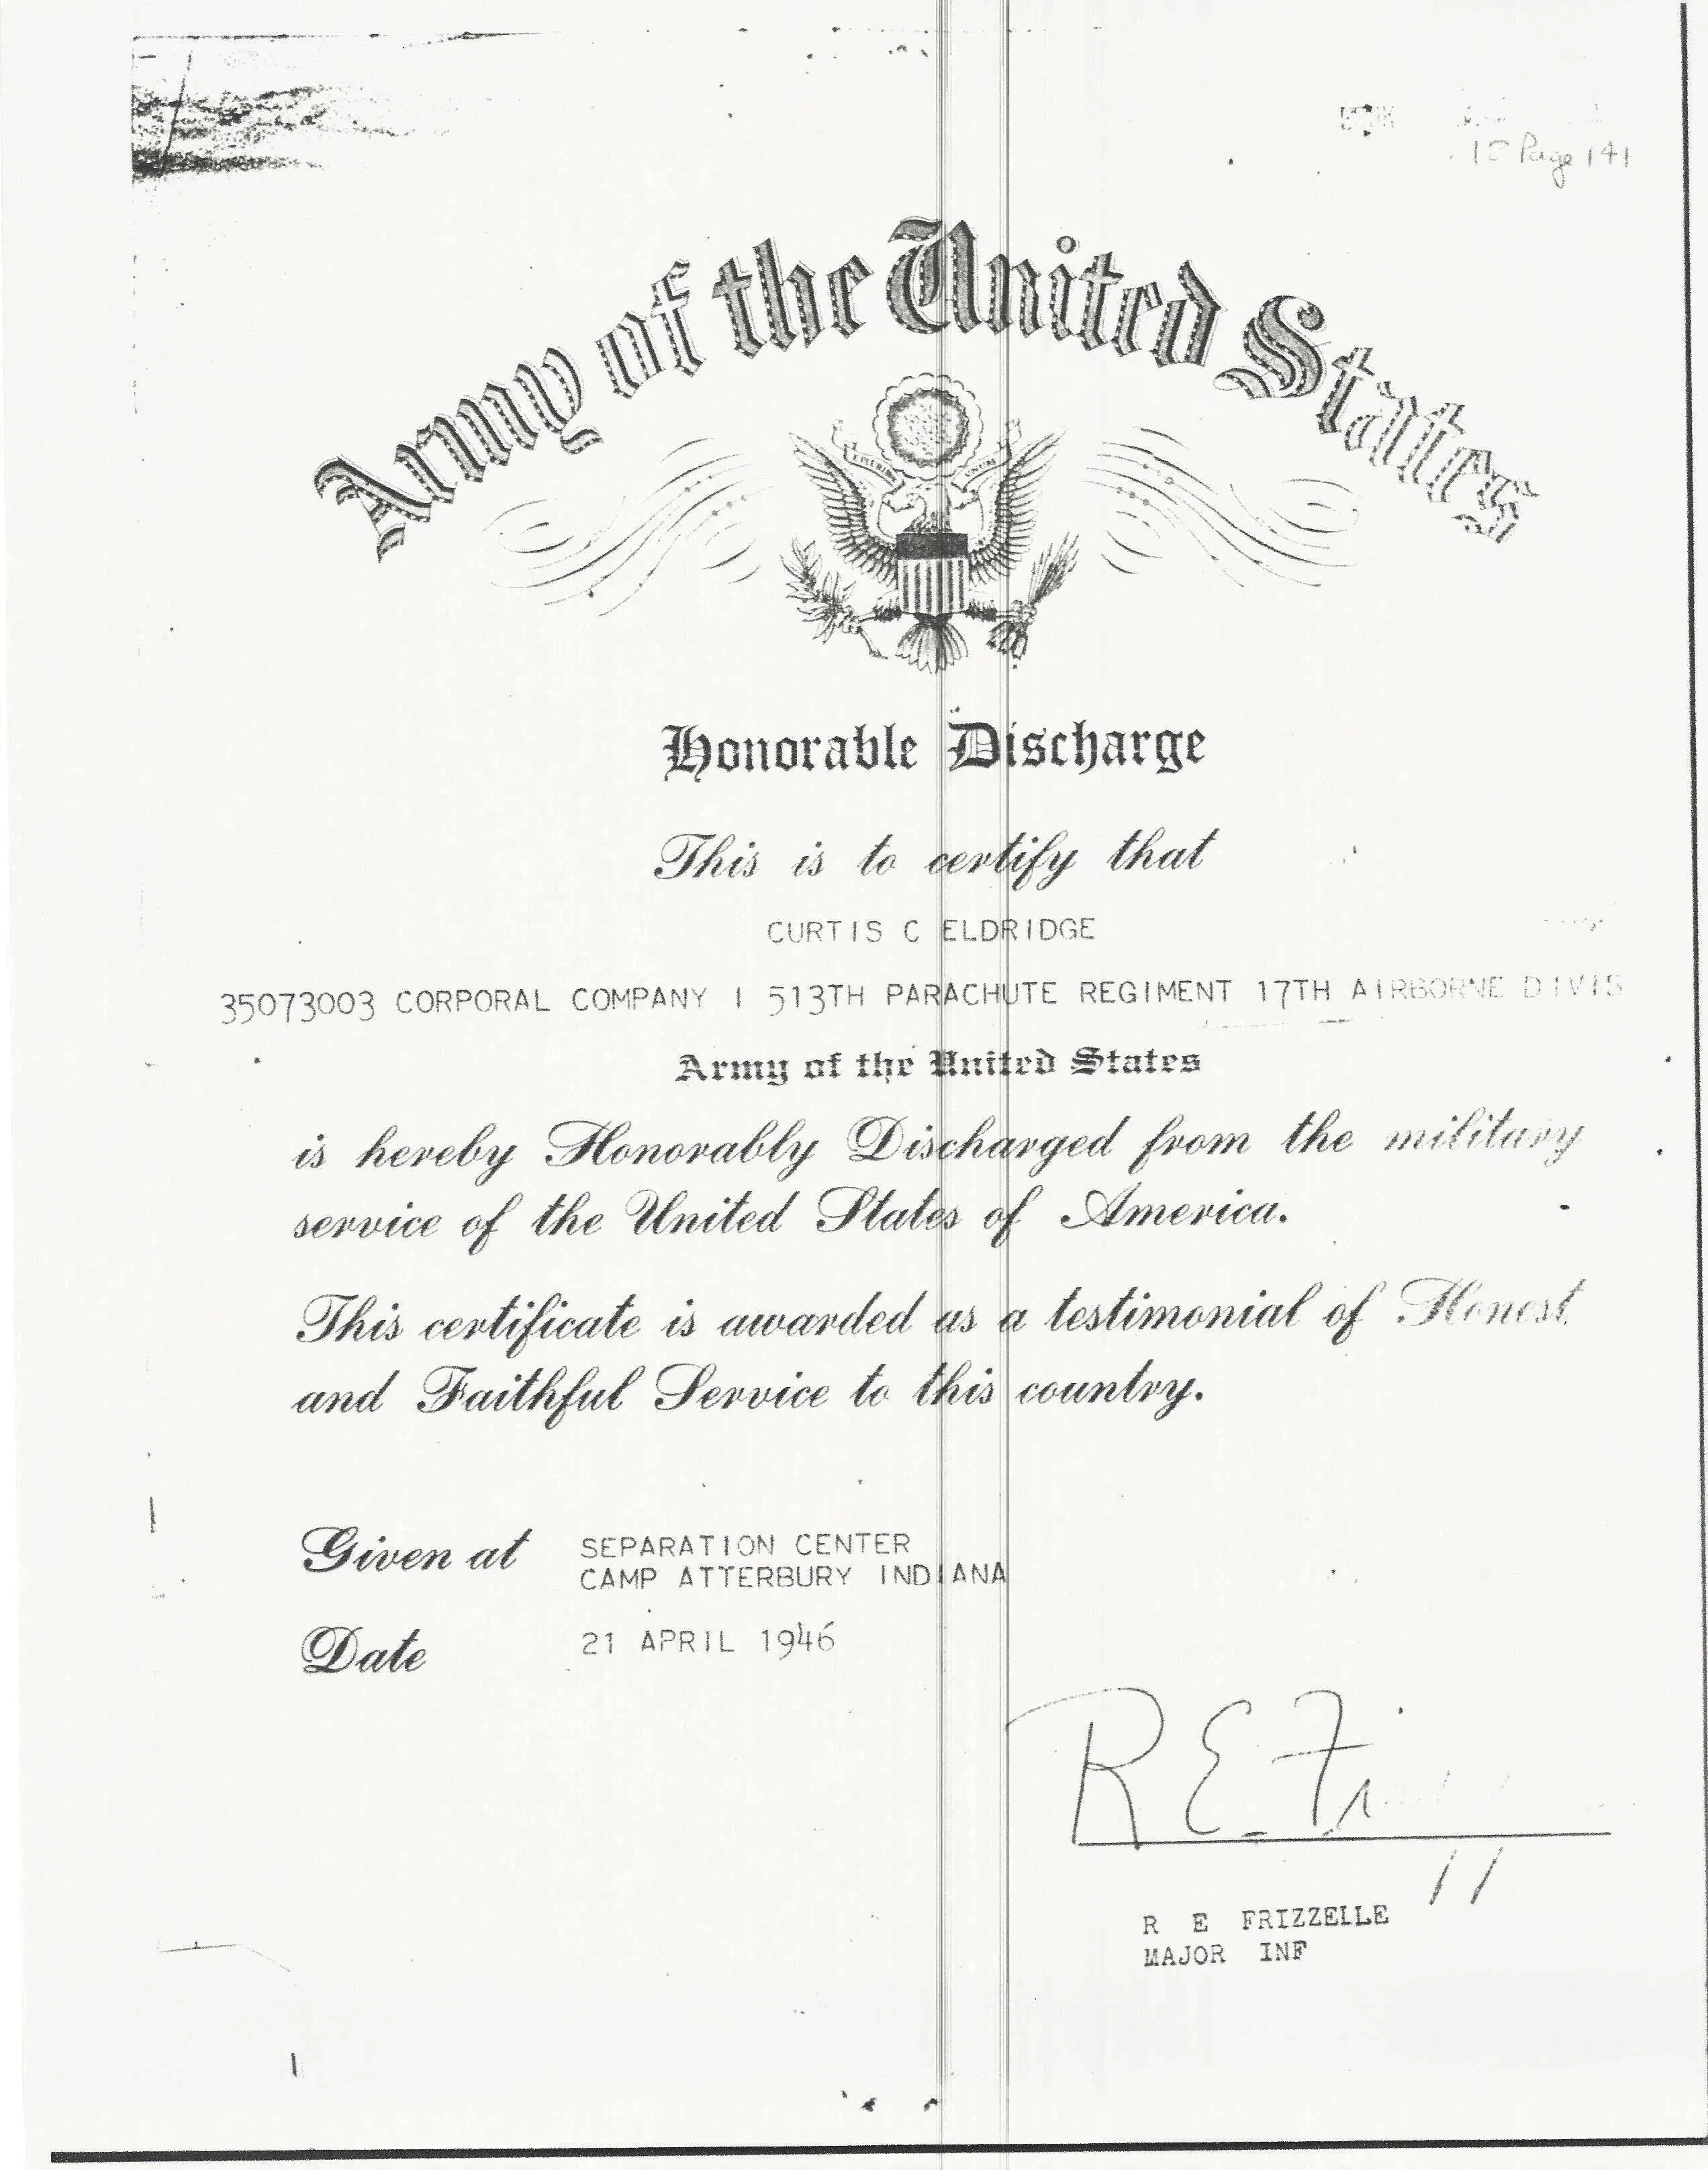 Page 141
Army of the United States
E PLURIBUS UNUM
Honorable Discharge
This is to certify that
CURTIS C ELDRIDGE
35073003 CORPORAL COMPANY I 513TH PARACHUTE REGIMENT 17TH AIRBORNE DIVIS
Army of the United States
is hereby Honorably Discharged from the military
service of the United States of America.
This certificate is awarded as a testimonial of Honest
and Faithful Service to this country.
Given at SEPARATION CENTER
CAMP ATTERBURY INDIANA
Date 21 APRIL 1946
R E
R E FRIZZELLE
MAJOR INF